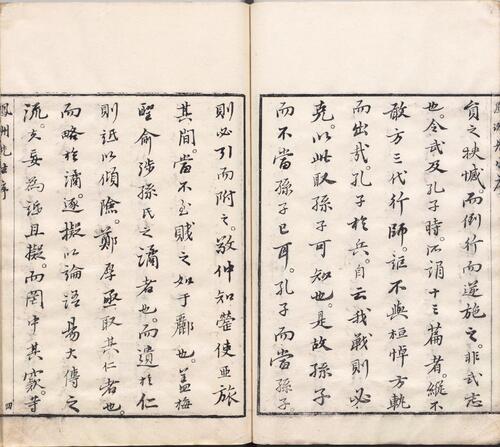 負之怏憾。而倒行而逆施之。非武志
也。令武及孔子時。所謂十三篇者。縱不
敢方三代行師。詎不與桓悼方軌
而出哉。孔子於兵。自云我戰則必
克。以此取孫子可知也。是故孫子
而不當孫子已耳。孔子而當孫子
則必引而附之。敬仲知罃使並旅
其間。當不至賊之如于鄺也。蓋梅
聖俞涉孫氏之譎者也。而遺於仁
則詆以傾險。鄭厚亟取其仁者也。
而略於譎。遂擬以論語易大傳之
流。夫妄為詆且擬。而罔中其窾。等
鳳州 序
四